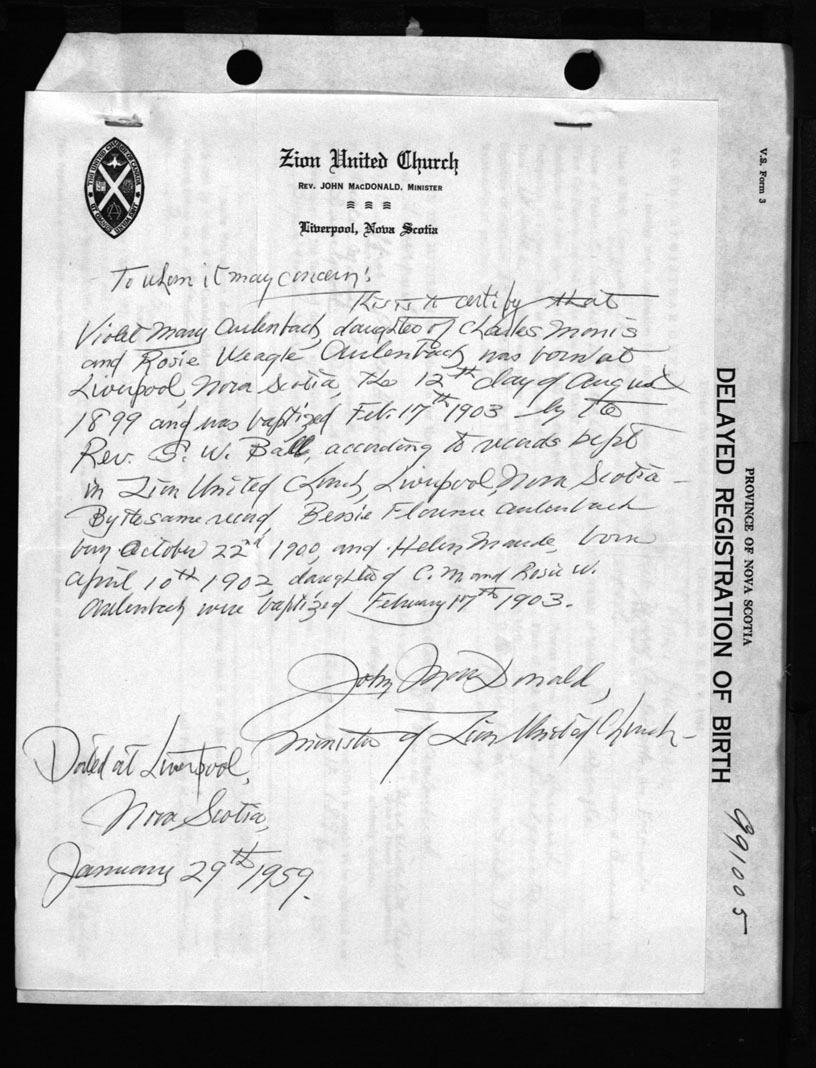 Zion United Church
REV. JOHN MACDONALD, MINISTER
Liverpool, Nova Scotia
To whom it may concern:
This is to certify that
Violet Mary Aulenbach, daughter of Charles Morris
and Rosie Weagle Aulenbach was born at
Liverpool, Nova Scotia, the 12th day of August
1899 and was baptized Feb. 17th 1903 by the
Rev. S. W. Ball, according to records kept
in Zion United Church, Liverpool, Nova Scotia -
By the same record, Bessie Florence Aulenbach
born October 22nd 1900, and Helen Maude, born
April 10th 1902, daughters of C. M. and Rosie W.
Aulenbach were baptized February 17th 1903.
John MacDonald,
Minister of Zion United Church -
Dated at Liverpool,
Nova Scotia,
January 29th 1959.
V.S. Form 3
PROVINCE OF NOVA SCOTIA
DELAYED REGISTRATION OF BIRTH
991005